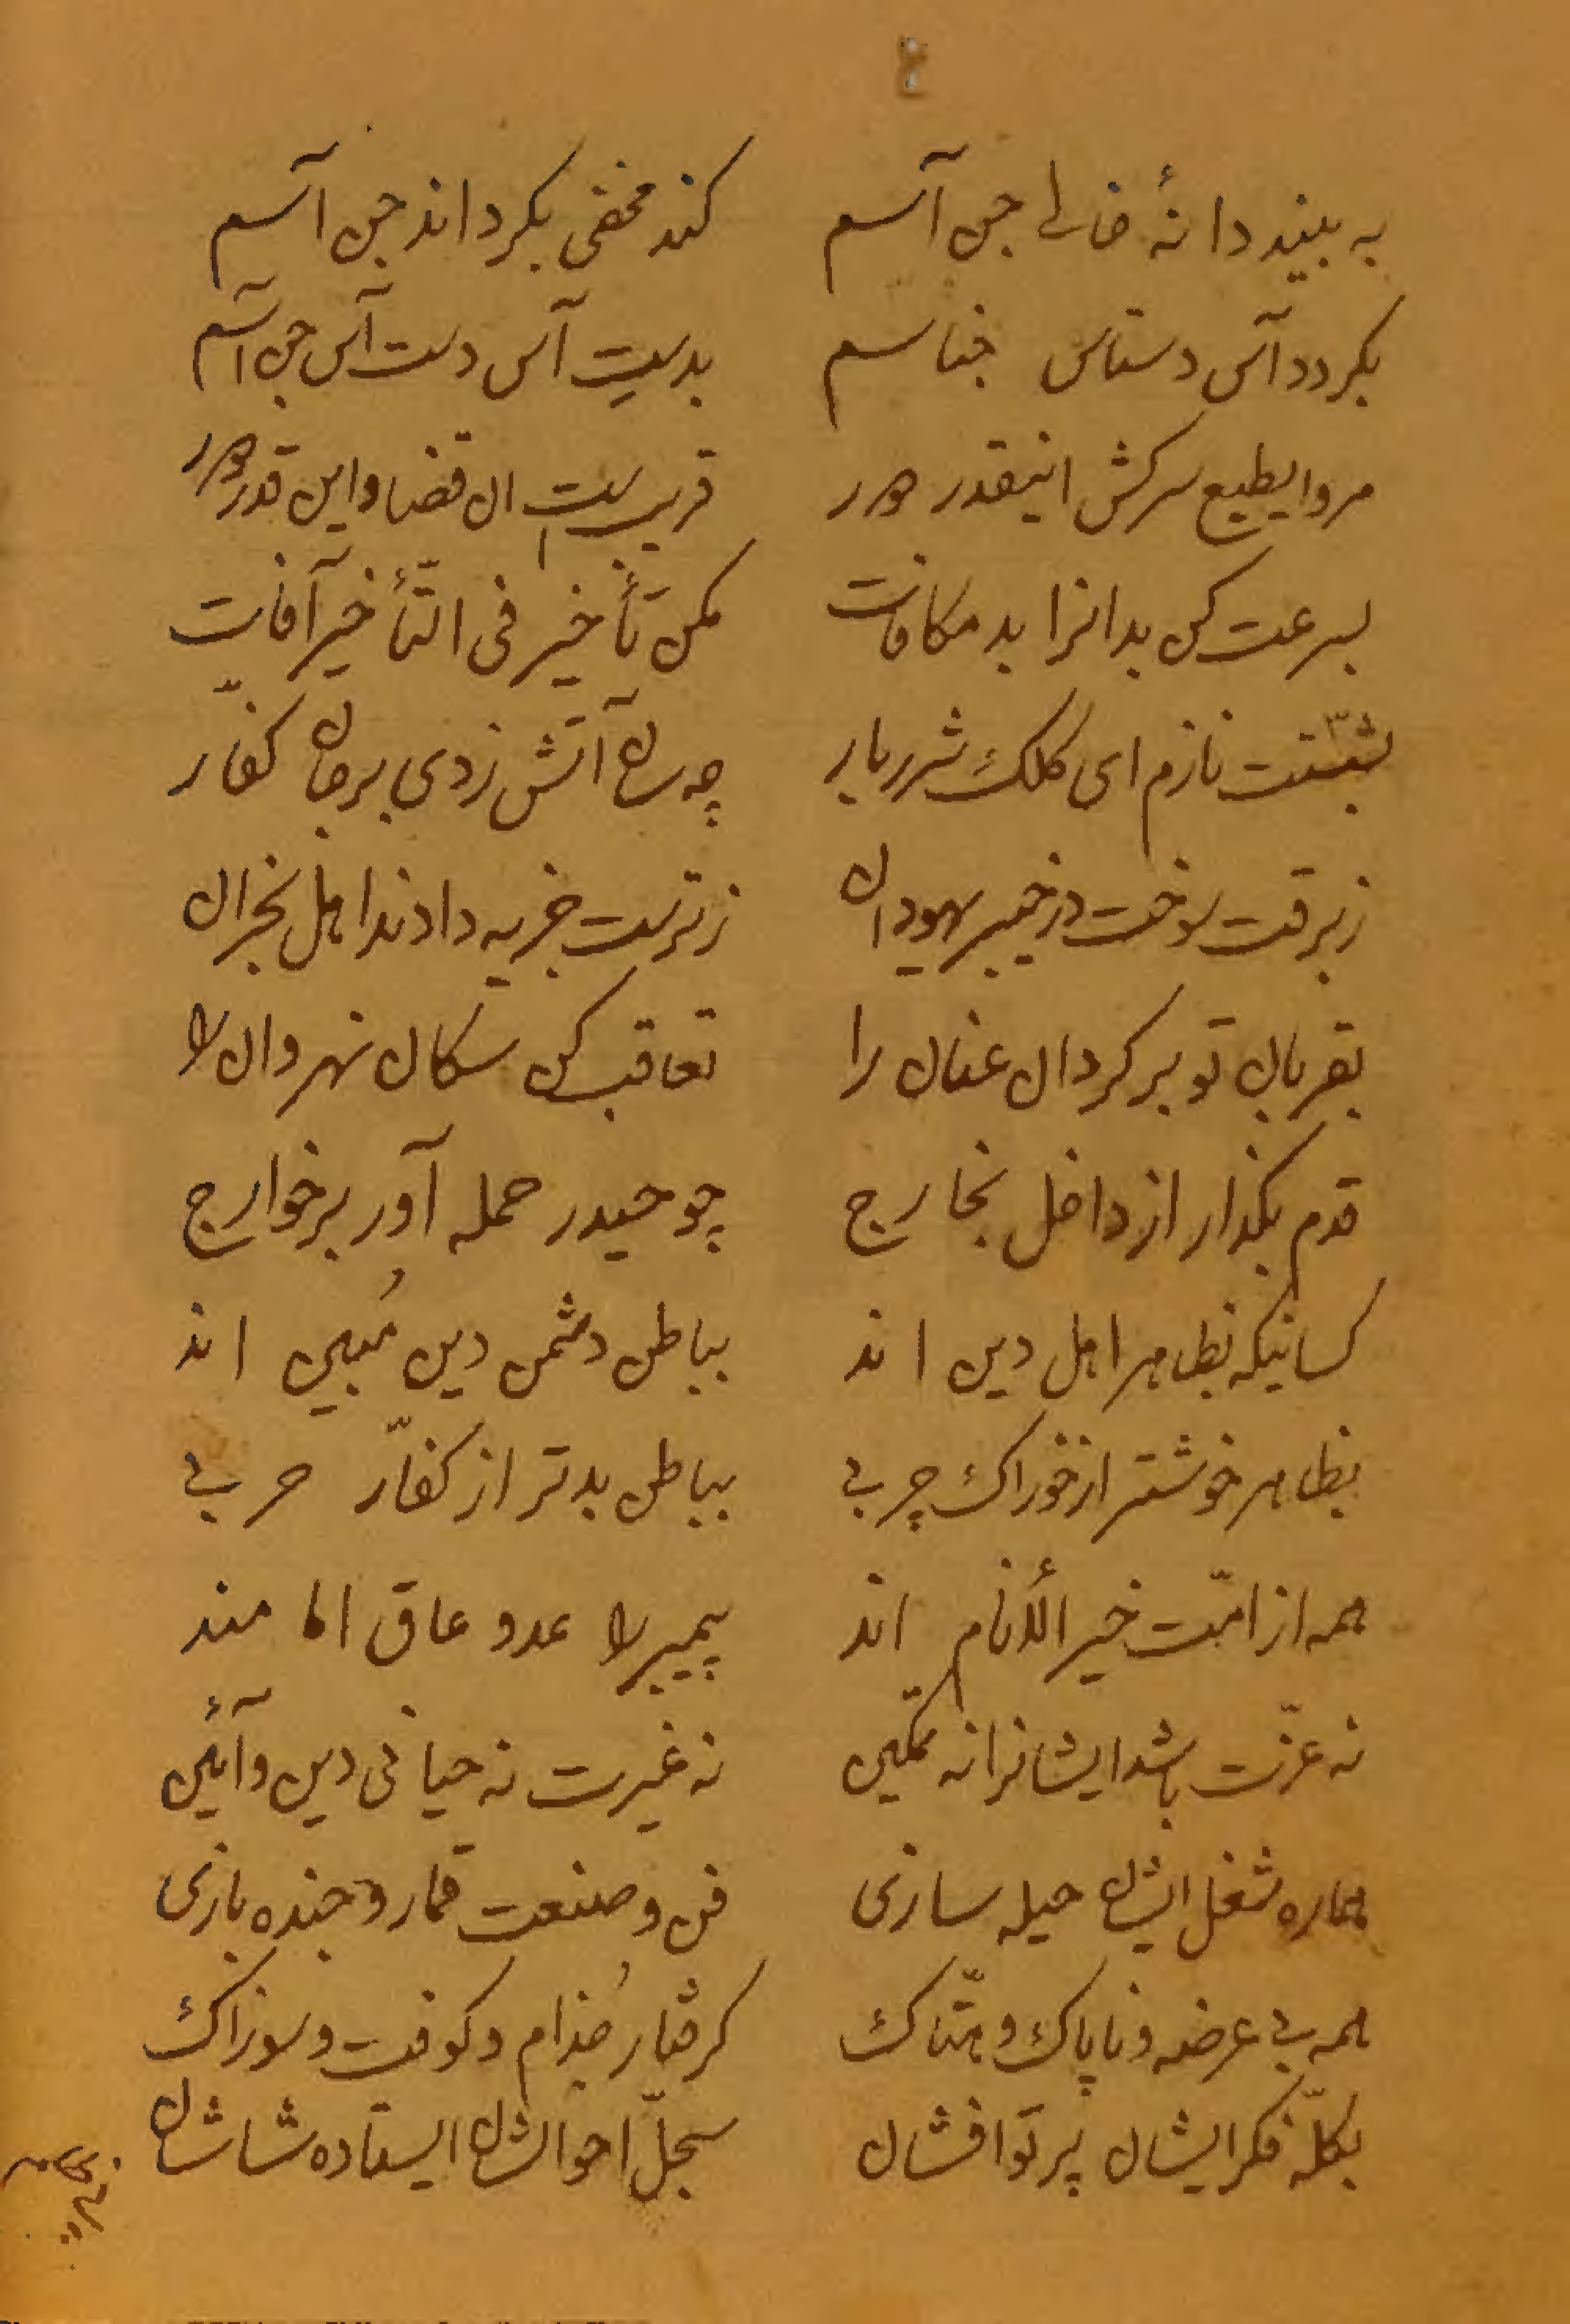 ۴
به بیند دانهٔ خالی جن آسم کند مخفی بکرداند جن آسم
بکردد آس دستاس جناسم بدست آس دست آس جن آسم
مرو ایطبع سرکش اینقدر هرر قریب است ان قضا و این قدر هرر
بسرعت کن بدانرا بد مکافات مکن تأخیر فی التّأخیر آفات
بشستت نازم ای کلک شرربار چه سان آتش زدی بر جان کفّار
ز برقت سوخت در خیبر یهودان ز ترست جزیه دادند اهل نجران
بقربان تو بر کردان عنان را تعاقب کن سکان نهروان را
قدم بکذار از داخل بخارج چو حیدر حمله آور بر خوارج
کسانیکه بظاهر اهل دین اند بباطن دشمن دین مُبین اند
بظاهر خوشتر از خوراک چربی بباطن بدتر از کفّار حربی
همه از امّت خیر الأنام اند پیمبر را عدو عاق امامند
نه عزّت باشد ایشانرا نه تمکین نه غیرت نه حیا نی دین و آئین
هماره شغل ایشان حیله سازی فن و صنعت قمار و جنده بازی
همه بی عرضه و ناپاک و هتّاک کرفتار جُذام و کوفت و سوزاک
بکلّه فکر ایشان پرتو افشان سجلّ احوالشان ایستاده شاشان